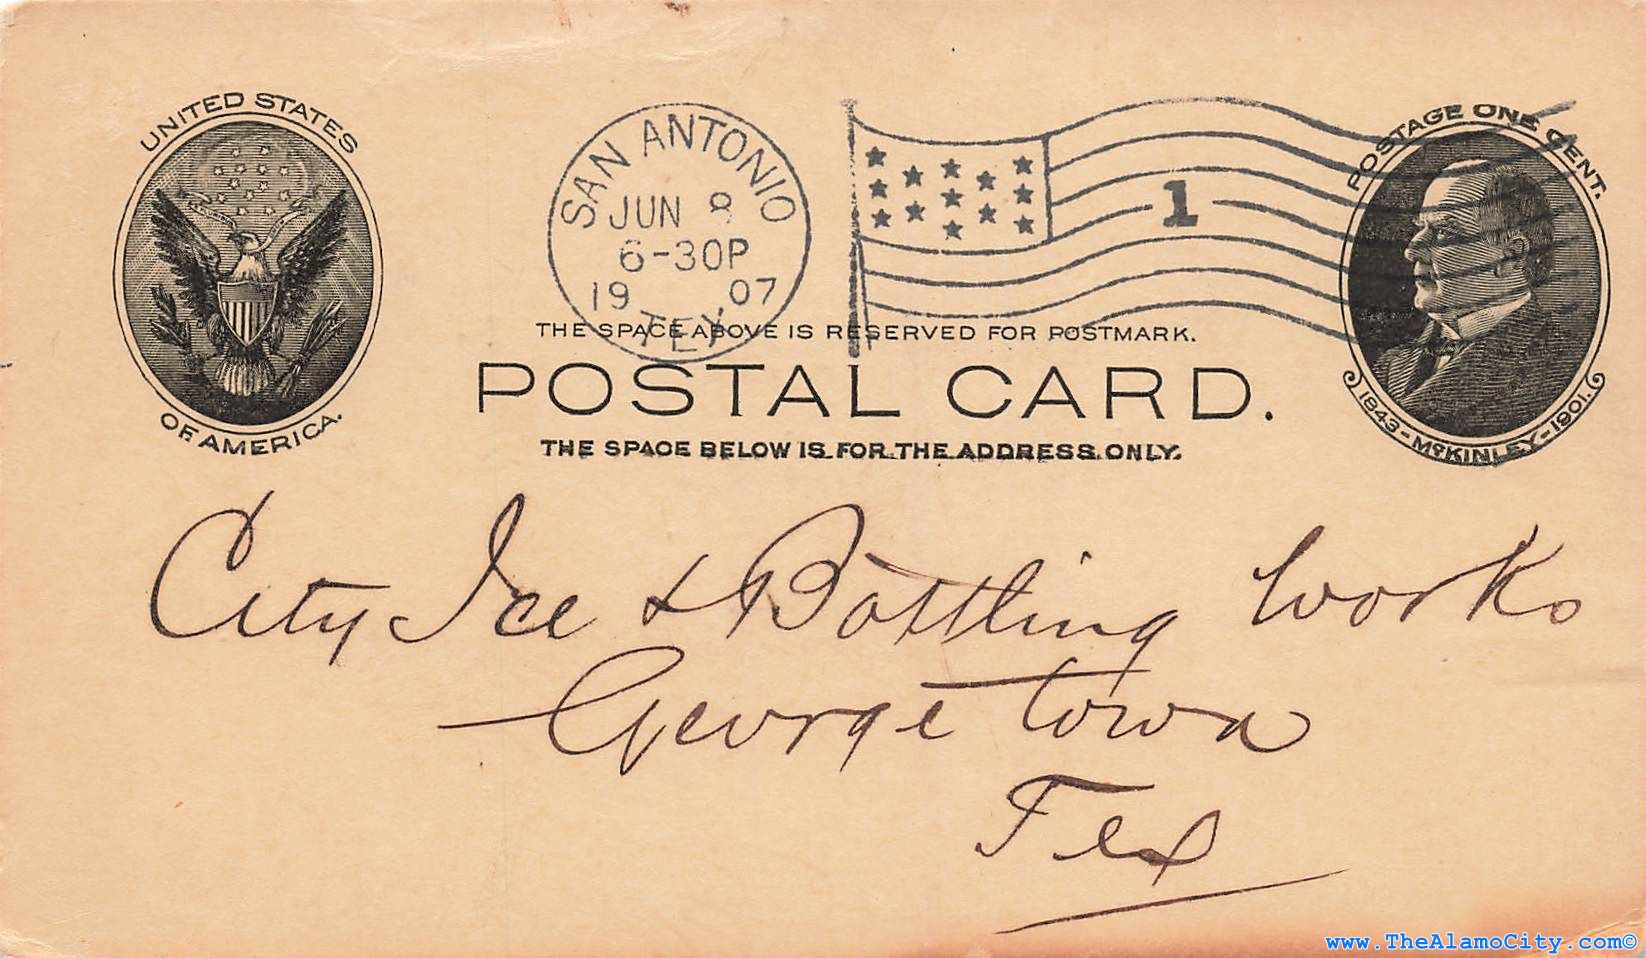 UNITED STATES
OF AMERICA.
SAN ANTONIO
JUN 8
6-30P
19 07
TEX
1
POSTAGE ONE CENT.
1843-McKINLEY-1901.
THE SPACE ABOVE IS RESERVED FOR POSTMARK.
POSTAL CARD.
THE SPACE BELOW IS FOR THE ADDRESS ONLY.
City Ice & Bottling Works
Georgetown
Tex
www.TheAlamoCity.com©